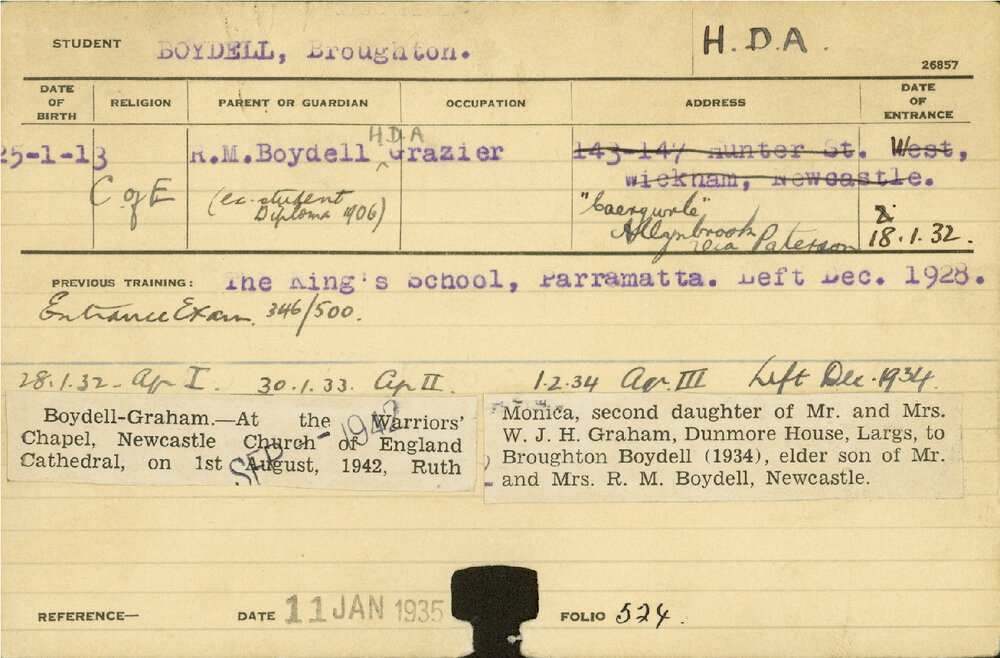 STUDENT BOYDELL, Broughton. H.D.A.
26857
DATE OF BIRTH RELIGION PARENT OR GUARDIAN OCCUPATION ADDRESS DATE OF ENTRANCE
H.D.A
25-1-13 R.M.Boydell Grazier 143-147 Hunter St. West,
Wickham, Newcastle.
C of E (ex-student "Caergwrle"
Diploma 1906) Allynbrook
via Paterson 18.1.32.
PREVIOUS TRAINING: The King's School, Parramatta. Left Dec. 1928.
Entrance Exam. 346/500.
28.1.32- Ag I. 30.1.33. Ag II. 1.2.34 Ag III Left Dec. 1934.
Boydell-Graham.—At the Warriors'
Chapel, Newcastle Church of England
Cathedral, on 1st August, 1942, Ruth
SEP - 1942
Monica, second daughter of Mr. and Mrs.
W. J. H. Graham, Dunmore House, Largs, to
Broughton Boydell (1934), elder son of Mr.
and Mrs. R. M. Boydell, Newcastle.
REFERENCE— DATE 11 JAN 1935 FOLIO 524.